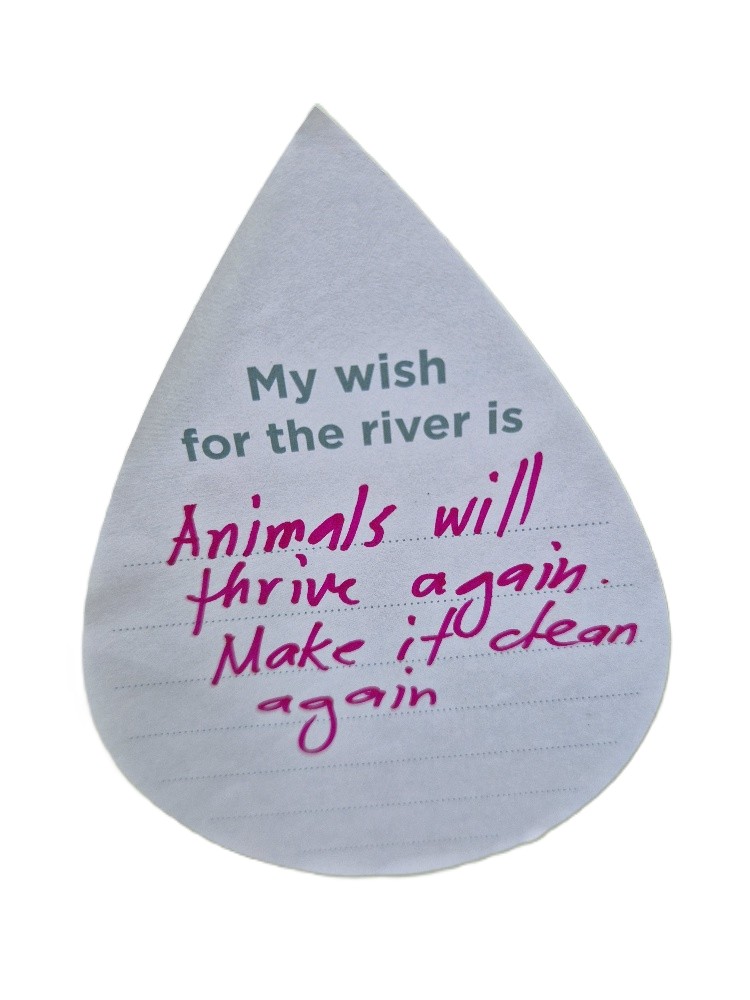 My wish
for the river is
Animals will
thrive again.
Make it clean
again